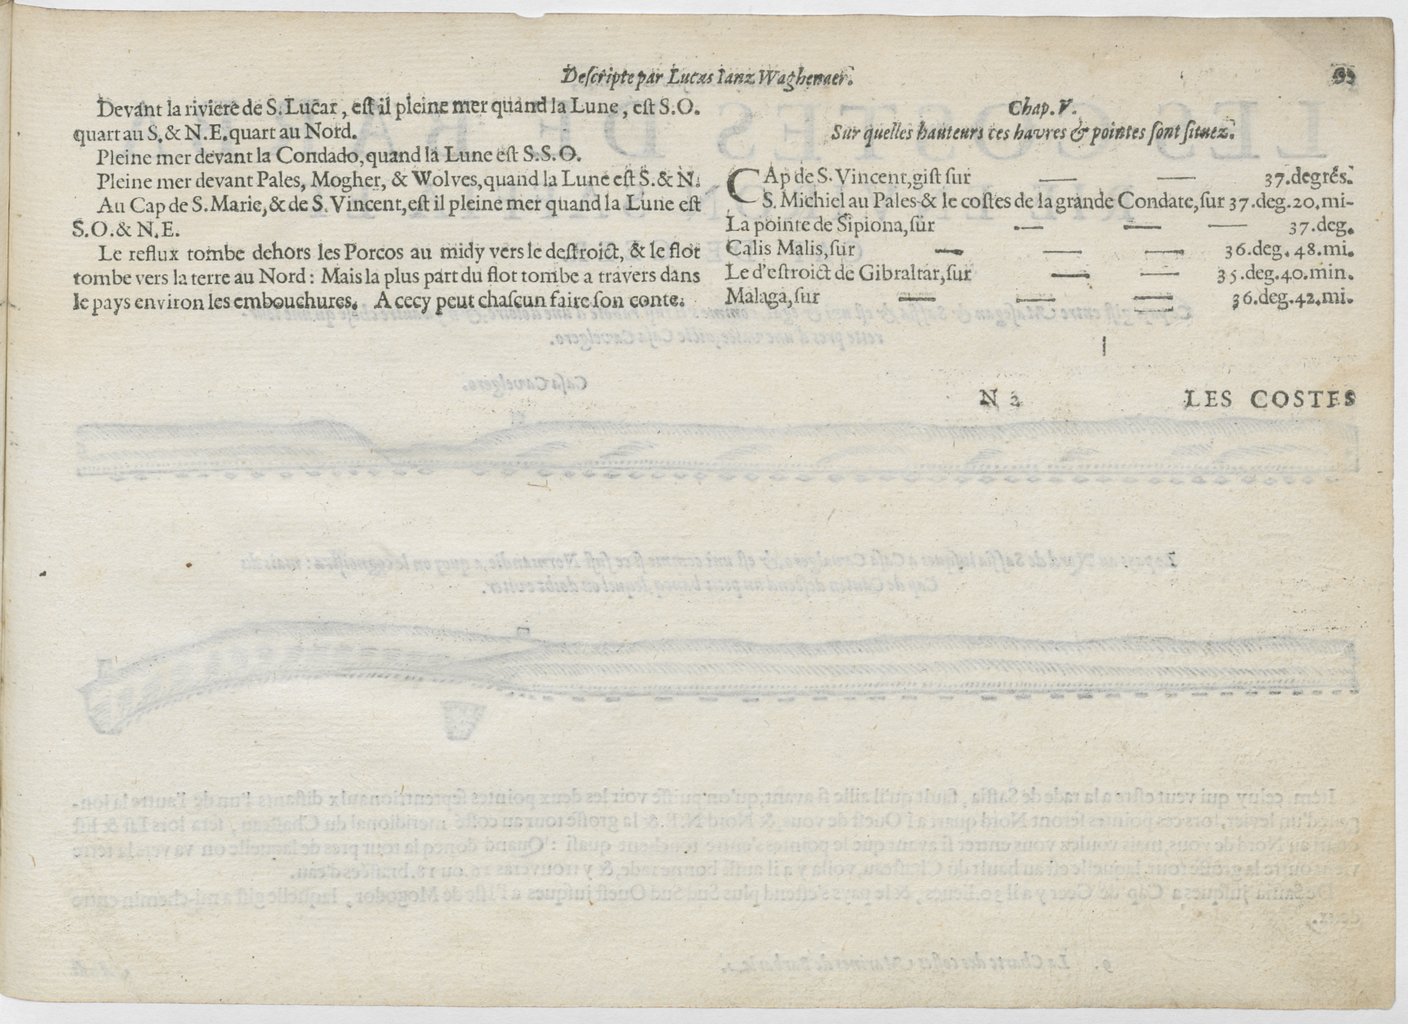 Descripte par Lucas Ianz Waghenaer.
Devant la riviere de S. Lucar, est il pleine mer quand la Lune, est S.O.
quart au S. & N.E. quart au Nord.
Pleine mer devant la Condado, quand la Lune est S.S.O.
Pleine mer devant Pales, Mogher, & Wolves, quand la Lune est S. & N.
Au Cap de S. Marie, & de S. Vincent, est il pleine mer quand la Lune est
S.O. & N.E.
Le reflux tombe dehors les Porcos au midy vers le destroict, & le flot
tombe vers la terre au Nord: Mais la plus part du flot tombe a travers dans
le pays environ les embouchures. A cecy peut chascun faire son conte.
Chap. V.
Sur quelles hauteurs ces havres & pointes sont situez.
CAp de S. Vincent, gist sur — — 37. degrés.
S. Michiel au Pales & le costes de la grande Condate, sur 37. deg. 20. mi-
La pointe de Sipiona, sur — — — 37. deg.
Calis Malis, sur — — — 36. deg. 48. mi.
Le d'estroict de Gibraltar, sur — — 35. deg. 40. min.
Malaga, sur — — — 36. deg. 42. mi.
N 2 LES COSTES